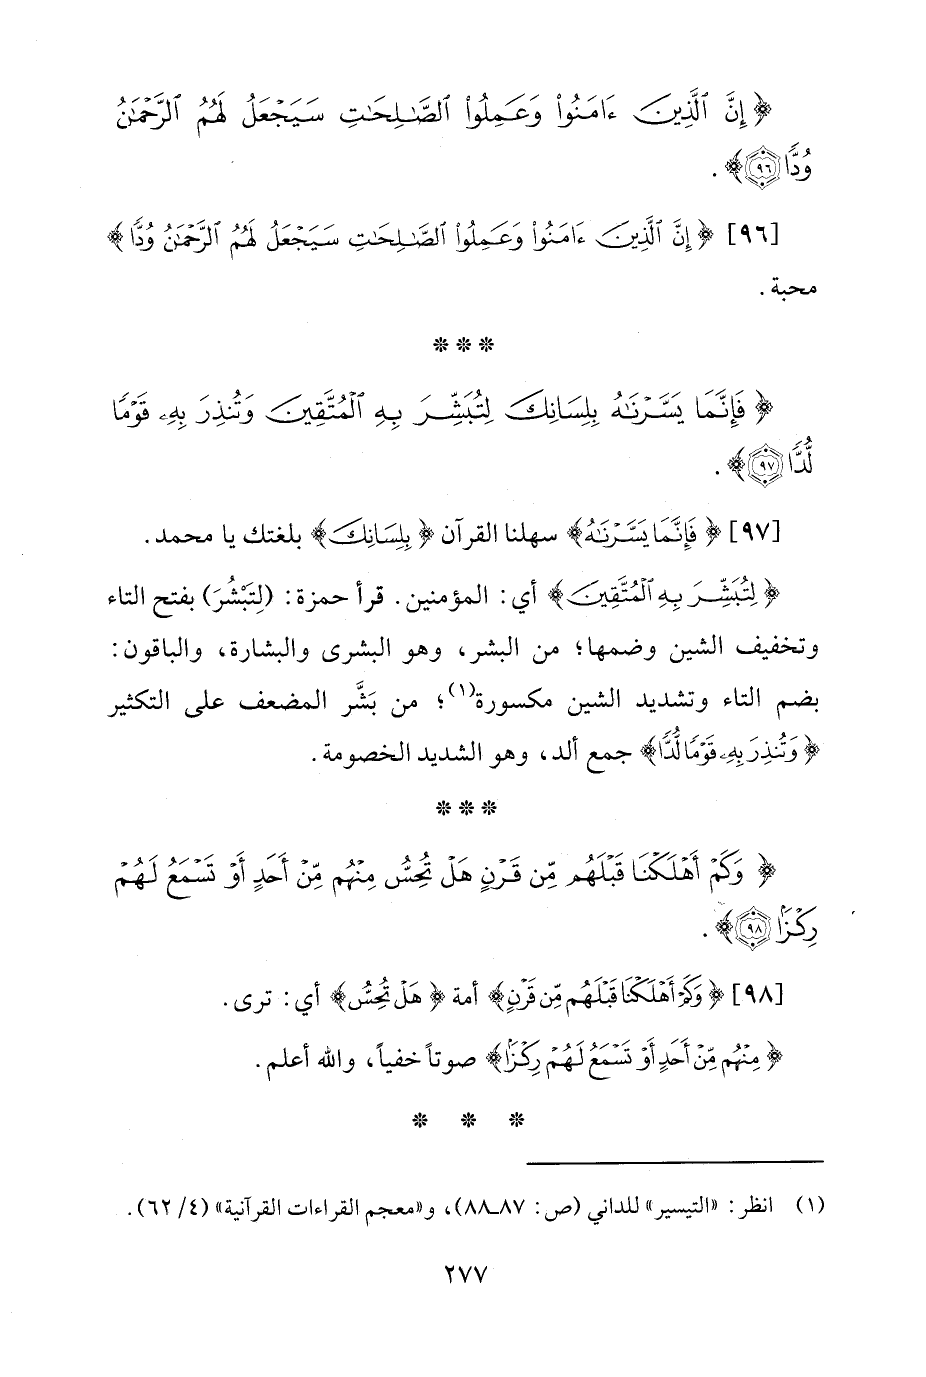 ﴿ إِنَّ ٱلَّذِينَ ءَامَنُوا۟ وَعَمِلُوا۟ ٱلصَّـٰلِحَـٰتِ سَيَجْعَلُ لَهُمُ ٱلرَّحْمَـٰنُ
وُدًّا ٩٦﴾ .
[٩٦] ﴿ إِنَّ ٱلَّذِينَ ءَامَنُوا۟ وَعَمِلُوا۟ ٱلصَّـٰلِحَـٰتِ سَيَجْعَلُ لَهُمُ ٱلرَّحْمَـٰنُ وُدًّا ﴾
محبة .
***
﴿ فَإِنَّمَا يَسَّرْنَـٰهُ بِلِسَانِكَ لِتُبَشِّرَ بِهِ ٱلْمُتَّقِينَ وَتُنذِرَ بِهِۦ قَوْمًا
لُّدًّا ٩٧﴾ .
[٩٧] ﴿ فَإِنَّمَا يَسَّرْنَـٰهُ﴾ سهلنا القرآن ﴿ بِلِسَانِكَ﴾ بلغتك يا محمد.
﴿ لِتُبَشِّرَ بِهِ ٱلْمُتَّقِينَ﴾ أي: المؤمنين. قرأ حمزة: (لِتَبْشُرَ) بفتح التاء
وتخفيف الشين وضمها؛ من البشر، وهو البشرى والبشارة، والباقون:
بضم التاء وتشديد الشين مكسورة(١)؛ من بَشَّر المضعف على التكثير
﴿ وَتُنذِرَ بِهِۦ قَوْمًا لُّدًّا﴾ جمع ألد، وهو الشديد الخصومة.
***
﴿ وَكَمْ أَهْلَكْنَا قَبْلَهُم مِّن قَرْنٍ هَلْ تُحِسُّ مِنْهُم مِّنْ أَحَدٍ أَوْ تَسْمَعُ لَهُمْ
رِكْزًۢا ٩٨﴾ .
[٩٨] ﴿ وَكَمْ أَهْلَكْنَا قَبْلَهُم مِّن قَرْنٍ﴾ أمة ﴿ هَلْ تُحِسُّ﴾ أي: ترى.
﴿ مِنْهُم مِّنْ أَحَدٍ أَوْ تَسْمَعُ لَهُمْ رِكْزًۢا﴾ صوتاً خفياً، والله أعلم.
* * *
(١) انظر: «التيسير» للداني (ص: ٨٧ـ٨٨)، و«معجم القراءات القرآنية» (٤/ ٦٢).
٢٧٧